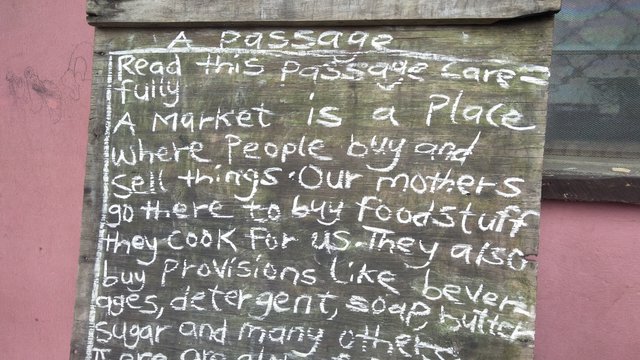 A Passage
Read this passage care=
fully
A Market is a Place
where People buy and
Sell things. Our mothers
go there to buy foodstuff
they cook for us. They also
buy Provisions like bever-
ages, detergent, soap, butter
sugar and many others
are